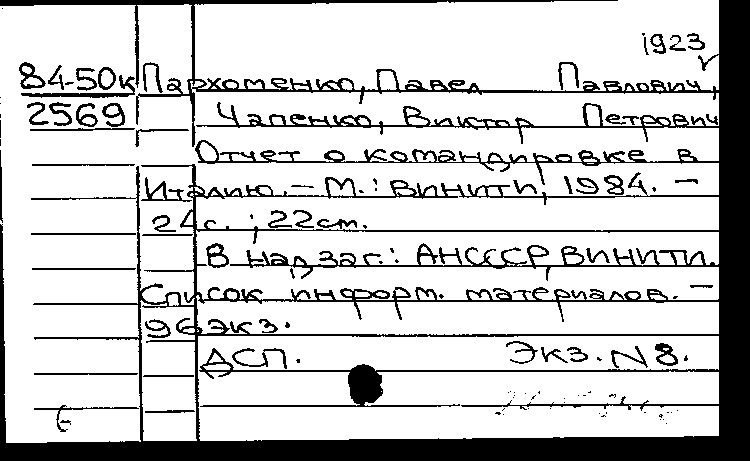 1923
84-50к Пархоменко, Павел Павлович,
2569 Чапенко, Виктор Петрович
Отчет о командировке в
Италию. – М.: ВИНИТИ, 1984. –
24с. ; 22см.
В надзаг.: АНСССР, ВИНИТИ.
Список информ. материалов. –
96экз.
ДСП. Экз. N8.
6